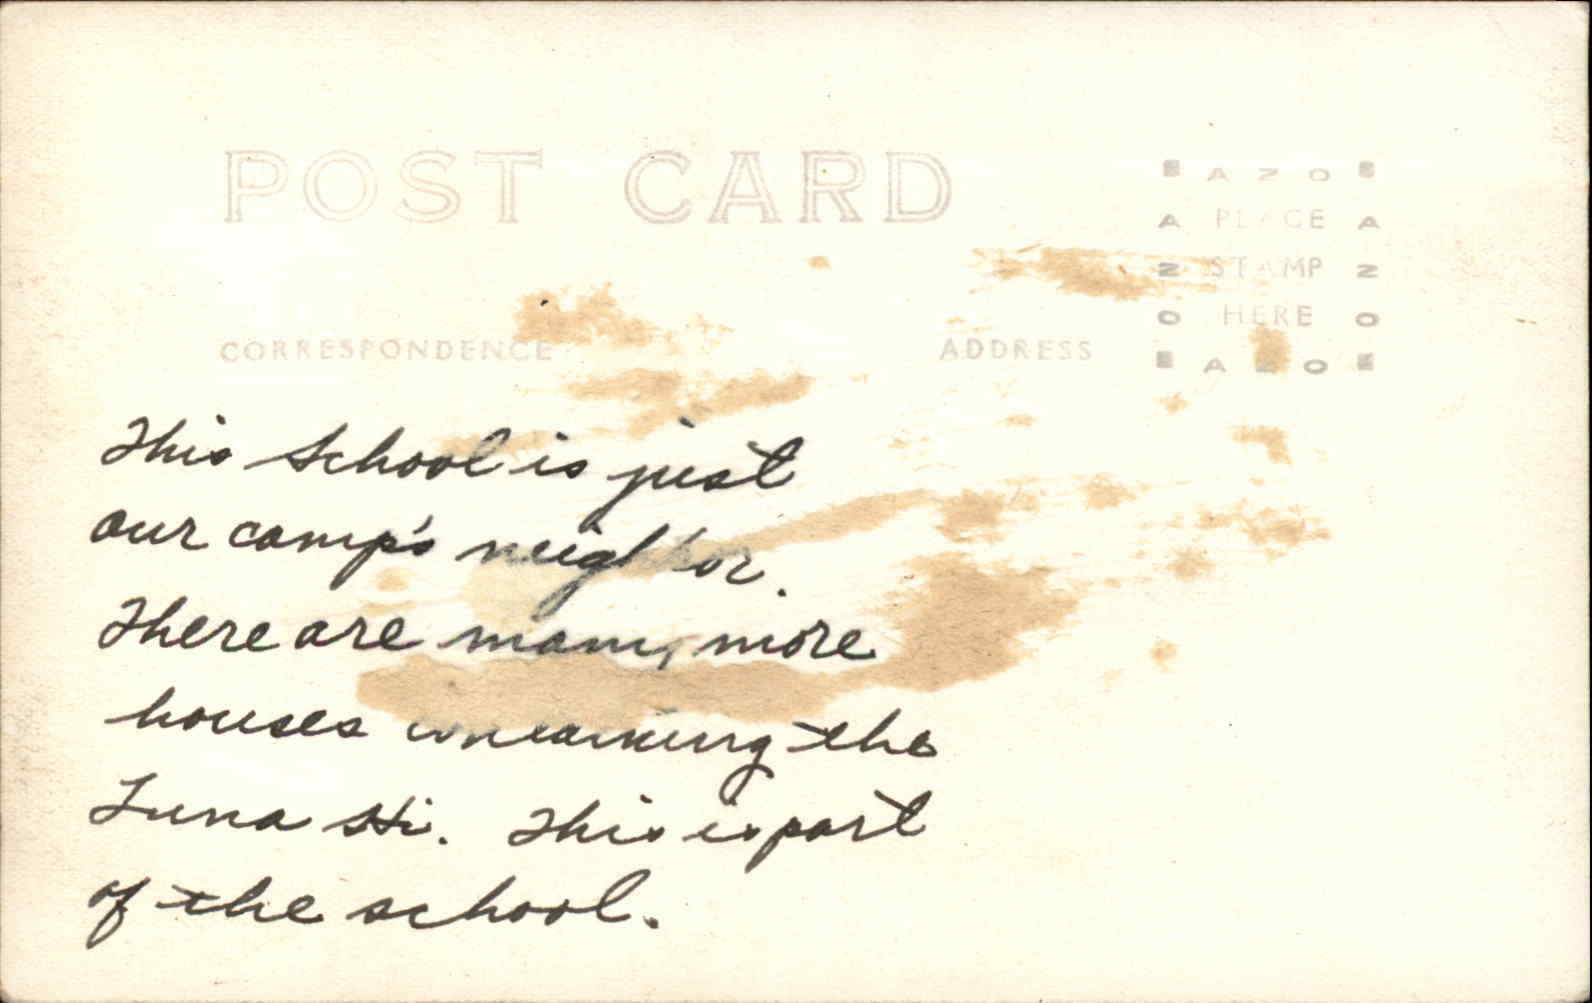 POST CARD
AZO
A PLACE A
Z STAMP Z
O HERE O
AZO
CORRESPONDENCE ADDRESS
This School is just
our camp's neighbor.
There are many more
houses containing the
Luna Hi. This is part
of the school.